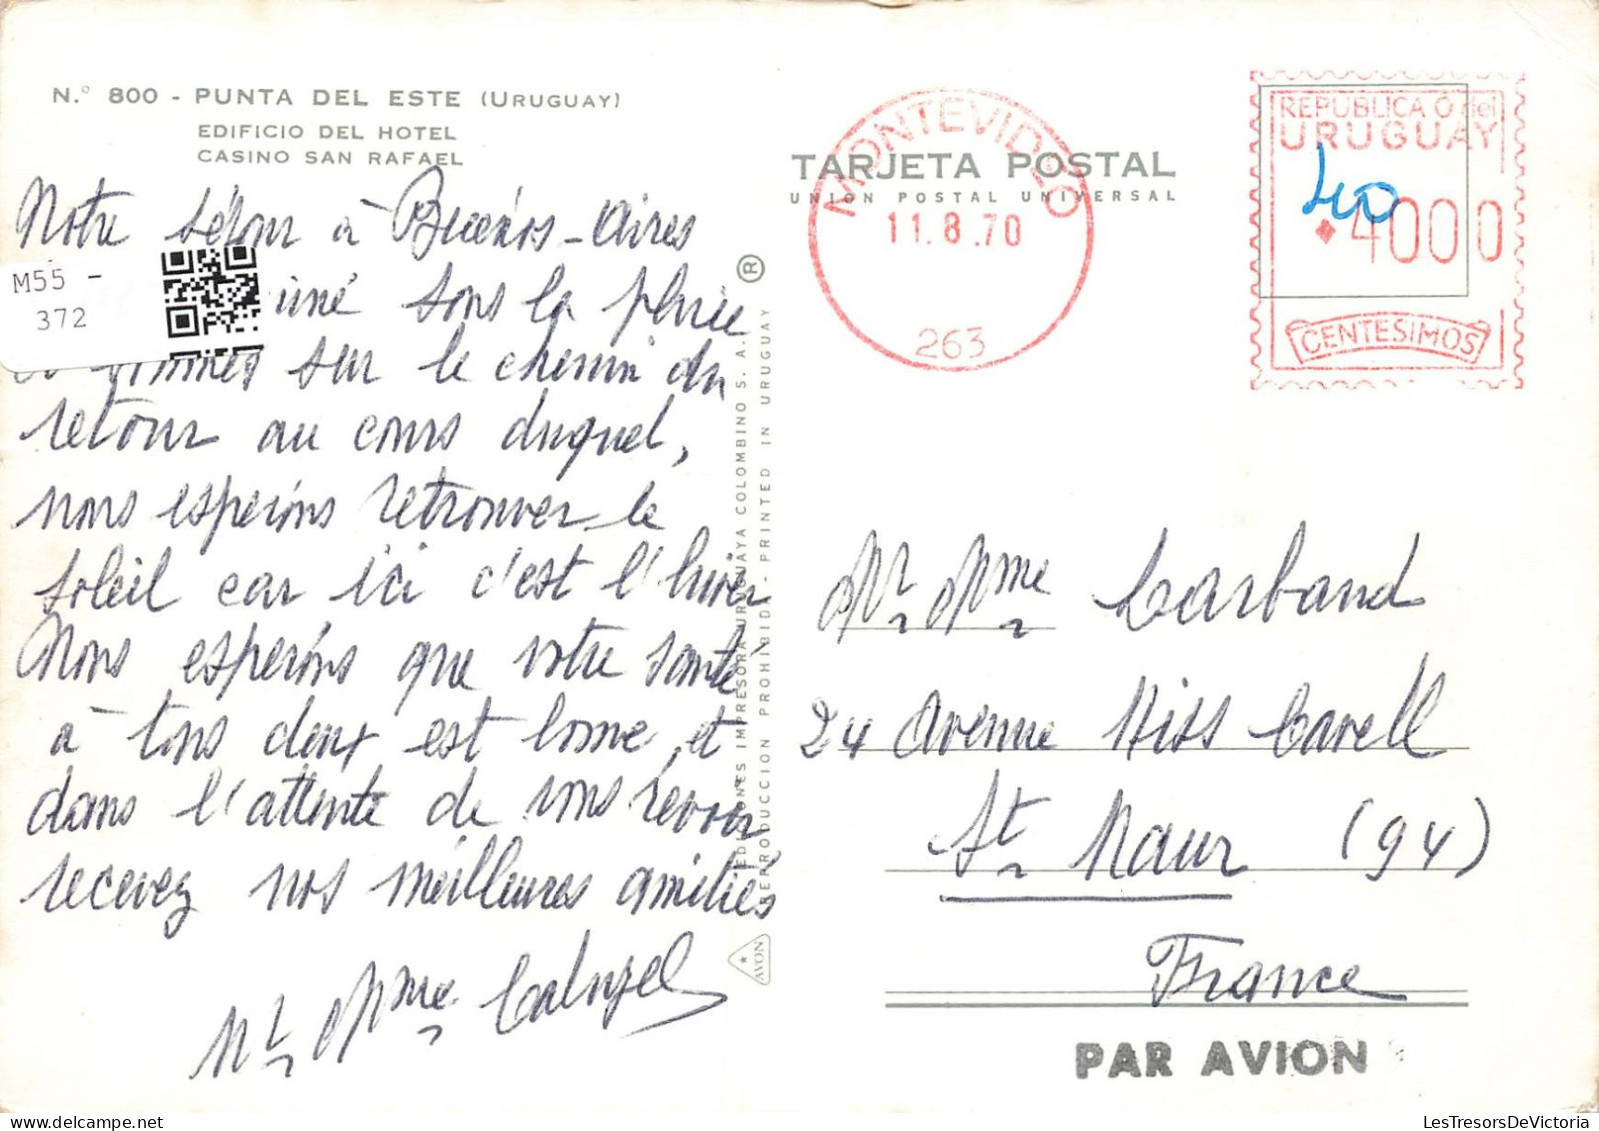 N.º 800 - PUNTA DEL ESTE (URUGUAY)
EDIFICIO DEL HOTEL
CASINO SAN RAFAEL
Notre séjour à Buenos-Aires
iné sous la pluie
et sommes sur le chemin du
retour au cours duquel,
nous espérons retrouver le
soleil car ici c'est l'hiver
Nous espérons que votre santé
à tous deux est bonne, et
dans l'attente de vous revoir
recevez nos meilleures amitiés
Mr Mme
M55 -
372
EDICIONES IMPRESORA URUGUAYA COLOMBINO S. A.
REPRODUCCION PROHIBIDA - PRINTED IN URUGUAY
R
AVON
TARJETA POSTAL
UNION POSTAL UNIVERSAL
MONTEVIDEO
11.8.70
263
REPUBLICA O del
URUGUAY
400
4000
CENTESIMOS
Mr Mme Carband
24 Avenue Miss Cavell
St Maur (94)
France
PAR AVION
LesTresorsDeVictoria.com